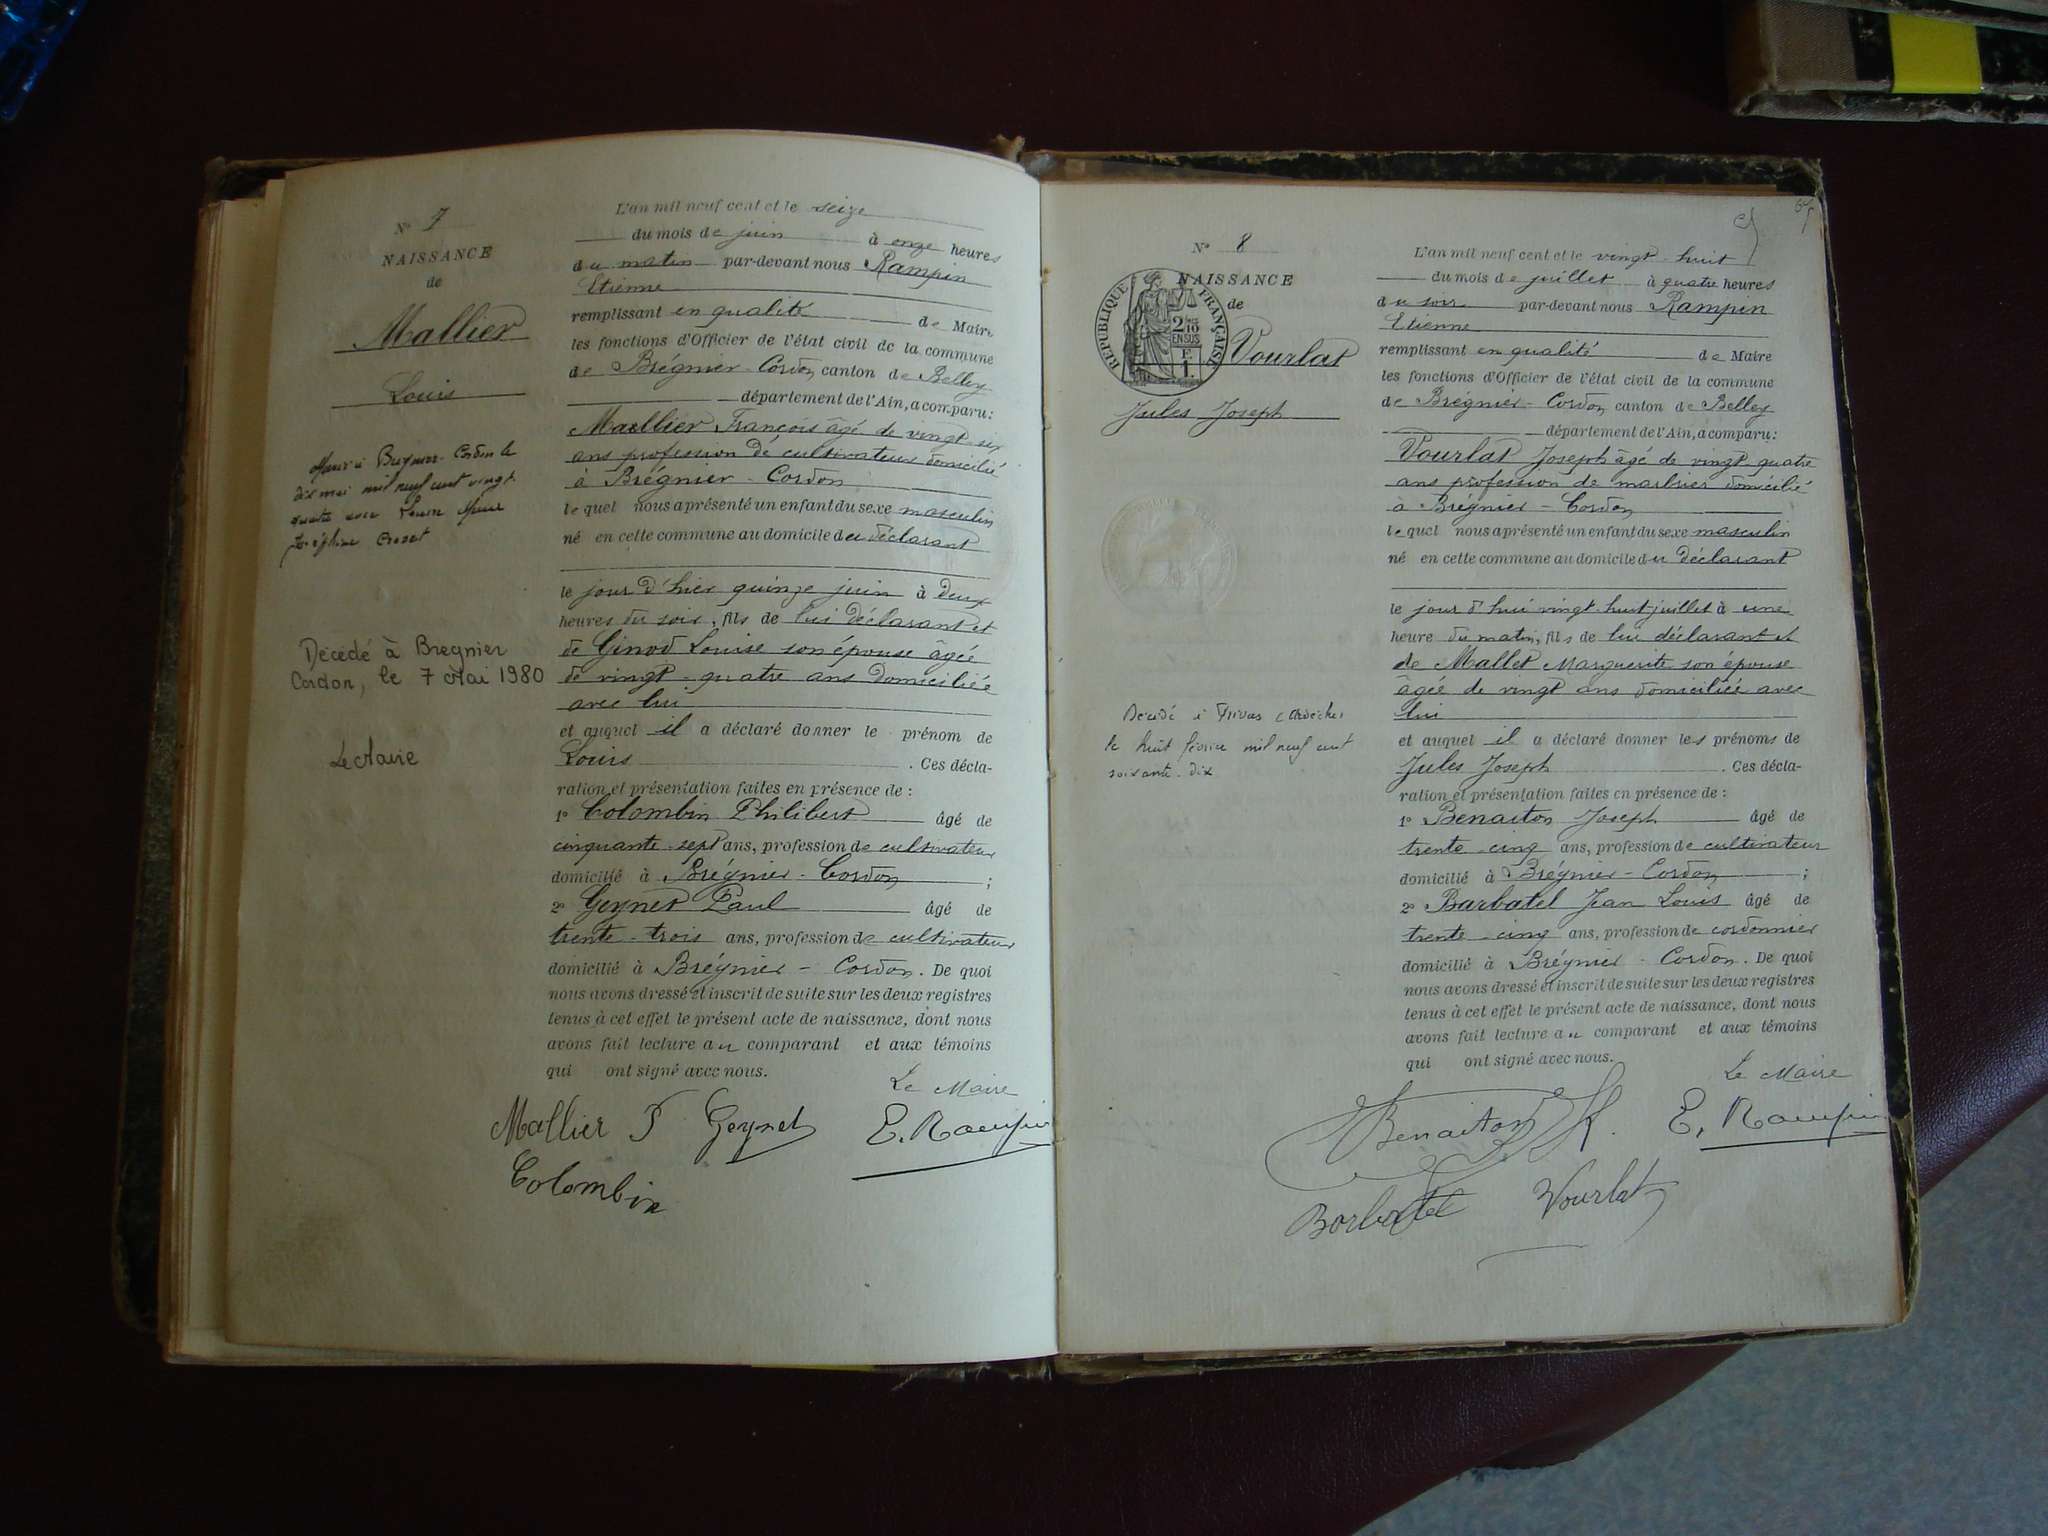 N° 7
NAISSANCE
de
Mallier
Louis
Marié à Brégnier-Cordon le
dix mai mil neuf cent vingt
quatre avec Louise Marie
Joséphine
Décédé à Bregnier
Cordon, le 7 Mai 1980
Le Maire
L'an mil neuf cent et le seize
du mois de juin à onze heures
du matin par-devant nous Rampin
Etienne
remplissant en qualité de Maire
les fonctions d'Officier de l'état civil de la commune
de Brégnier-Cordon, canton de Belley
département de l'Ain, a comparu:
Mallier François âgé de vingt six
ans profession de cultivateur domicilié
à Brégnier-Cordon
le quel nous a présenté un enfant du sexe masculin
né en cette commune au domicile du déclarant
le jour d'hier quinze juin à deux
heures du soir, fils de lui déclarant et
de Ginod Louise son épouse âgée
de vingt-quatre ans domiciliée
avec lui
et auquel il a déclaré donner le prénom de
Louis . Ces décla-
ration et présentation faites en présence de :
1° Colombin Philibert âgé de
cinquante-sept ans, profession de cultivateur
domicilié à Brégnier-Cordon ;
2° Geynet Paul âgé de
trente-trois ans, profession de cultivateur
domicilié à Brégnier-Cordon. De quoi
nous avons dressé et inscrit de suite sur les deux registres
tenus à cet effet le présent acte de naissance, dont nous
avons fait lecture au comparant et aux témoins
qui ont signé avec nous.
Le Maire
Mallier F Geynet E. Rampin
Colombin
N° 8
NAISSANCE
de
REPUBLIQUE FRANÇAISE
2/10
EN SUS
F.
1.
Vourlat
Jules Joseph
Décédé à Privas (Ardèche)
le huit février mil neuf cent
soixante-dix
L'an mil neuf cent et le vingt-huit
du mois de juillet à quatre heures
du soir par-devant nous Rampin
Etienne
remplissant en qualité de Maire
les fonctions d'Officier de l'état civil de la commune
de Brégnier-Cordon, canton de Belley
département de l'Ain, a comparu:
Vourlat Joseph âgé de vingt-quatre
ans profession de marbrier domicilié
à Brégnier-Cordon
le quel nous a présenté un enfant du sexe masculin
né en cette commune au domicile du déclarant
le jour d'hui vingt-huit juillet à une
heure du matin, fils de lui déclarant et
de Mallet Marguerite son épouse
âgée de vingt ans domiciliée avec
lui
et auquel il a déclaré donner les prénoms de
Jules Joseph . Ces décla-
ration et présentation faites en présence de :
1° Benaiton Joseph âgé de
trente-cinq ans, profession de cultivateur
domicilié à Brégnier-Cordon ;
2° Barbatel Jean Louis âgé de
trente-cinq ans, profession de cordonnier
domicilié à Brégnier-Cordon. De quoi
nous avons dressé et inscrit de suite sur les deux registres
tenus à cet effet le présent acte de naissance, dont nous
avons fait lecture au comparant et aux témoins
qui ont signé avec nous.
Le Maire
Benaiton E. Rampin
Barbatel Vourlat